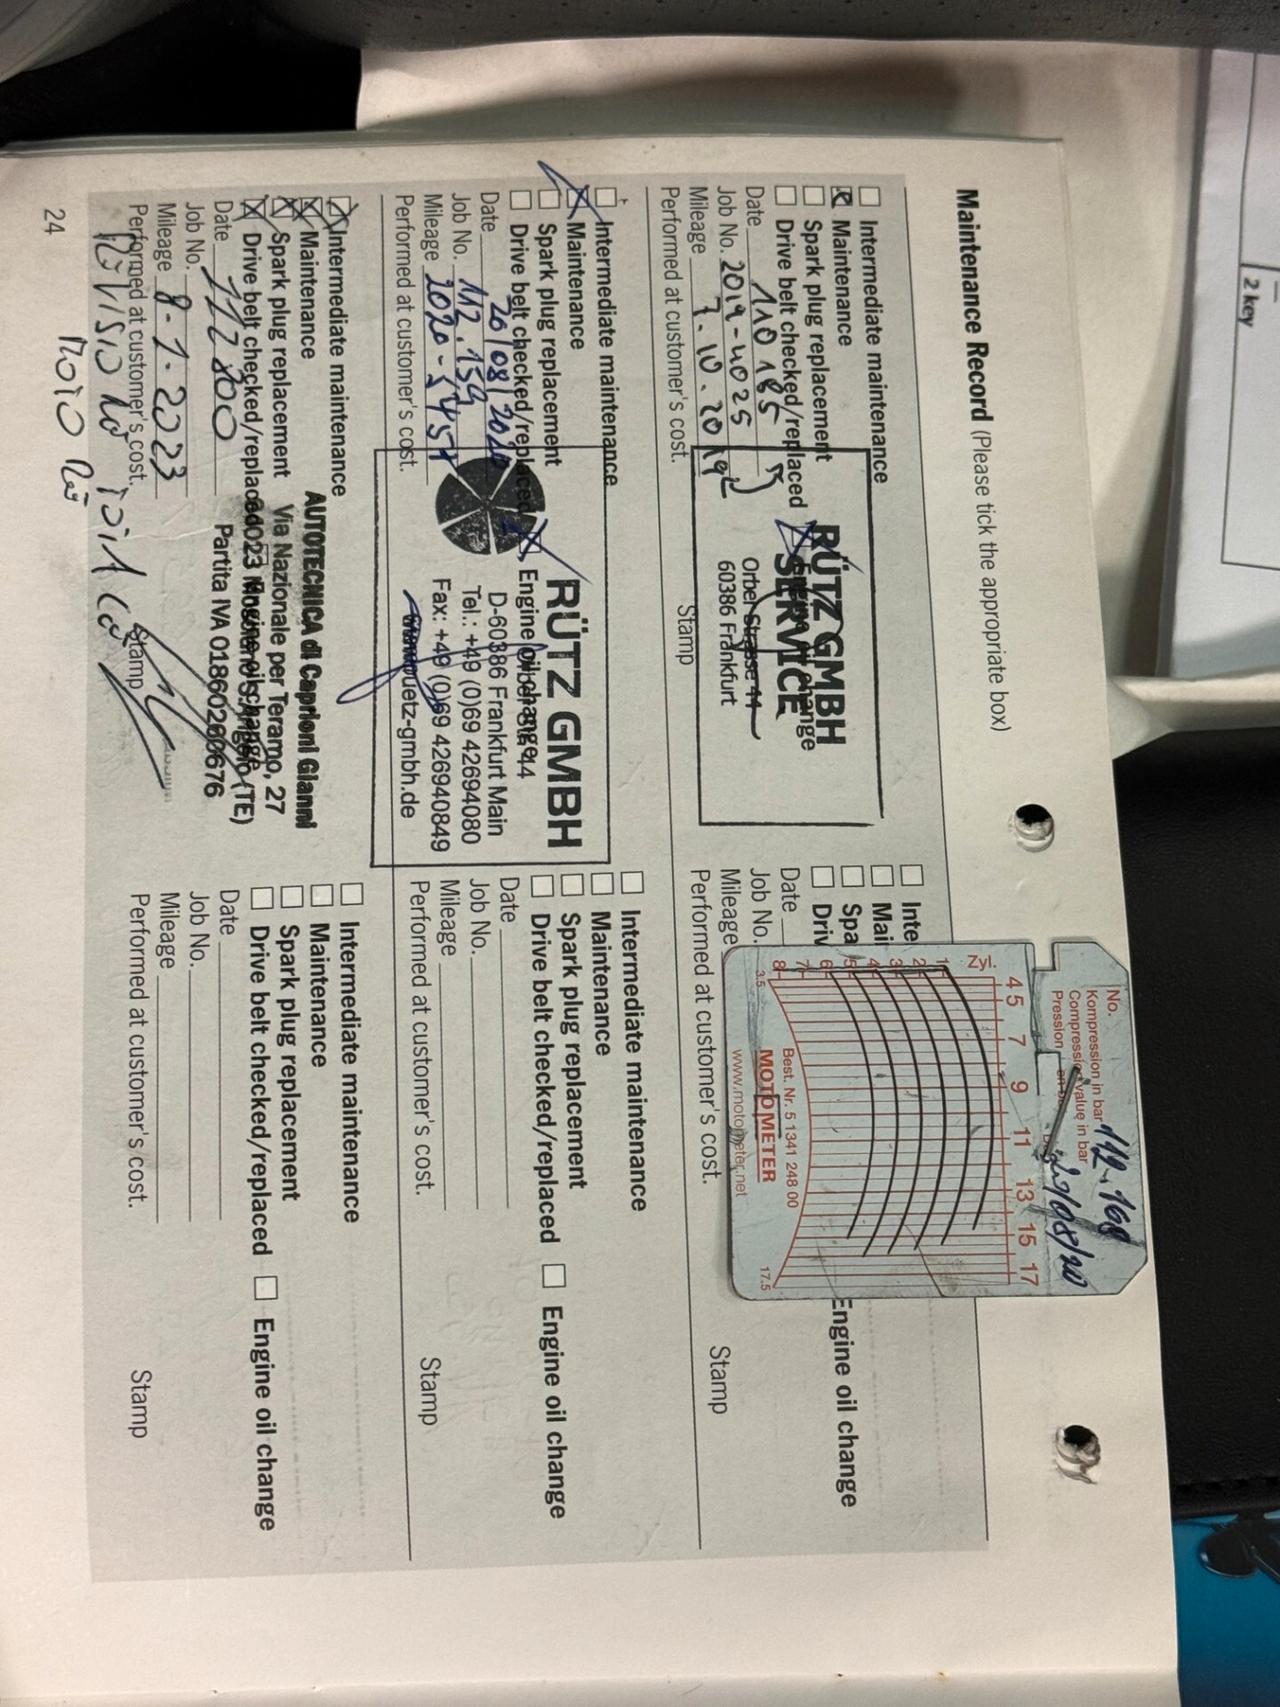 Maintenance Record (Please tick the appropriate box)
Intermediate maintenance
Maintenance
Spark plug replacement
Drive belt checked/replaced
Engine oil change
Date 110 185
Job No. 2019-4025
Mileage 7.10.2019
Performed at customer's cost.
Stamp
RÜTZ GMBH
SERVICE
Orber Strasse 44
60386 Frankfurt
Intermediate maintenance
Maintenance
Spark plug replacement
Drive belt checked/replaced
Engine oil change
Date 20/08/2020
Job No. 112.159
Mileage 2020-5457
Performed at customer's cost.
RÜTZ GMBH
D-60386 Frankfurt Main
Tel.: +49 (0)69 42694080
Fax: +49 (0)69 426940849
Intermediate maintenance
Maintenance
Spark plug replacement
Drive belt checked/replaced
Engine oil change
Date 112800
Job No.
Mileage 8-1-2023
Performed at customer's cost.
Stamp
AUTOTECNICA di Caprioni Gianni
Via Nazionale per Teramo, 27
(TE)
Partita IVA 01860260676
24
Inte
Mai
Spa
Driv
Engine oil change
Date
Job No.
Mileage
Performed at customer's cost.
Stamp
No.
112.160
Kompression in bar
Compression value in bar
Pression
Zyl.
4 5 7 9 11 13 15 17
1
2
3
4
5
6
7
8
3.5
17.5
Best. Nr. 5 1341 248 00
MOTOMETER
www.motometer.net
Intermediate maintenance
Maintenance
Spark plug replacement
Drive belt checked/replaced
Engine oil change
Date
Job No.
Mileage
Performed at customer's cost.
Stamp
Intermediate maintenance
Maintenance
Spark plug replacement
Drive belt checked/replaced
Engine oil change
Date
Job No.
Mileage
Performed at customer's cost.
Stamp
2 key